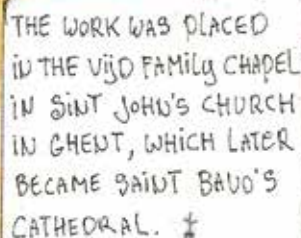 THE WORK WAS PLACED
iN THE VijD FAMiLy CHAPEL
iN SiNT JOHN'S CHURCH
IN GHENT, WHiCH LATER
BECAME SAiNT BAVO'S
CATHEDRAL.